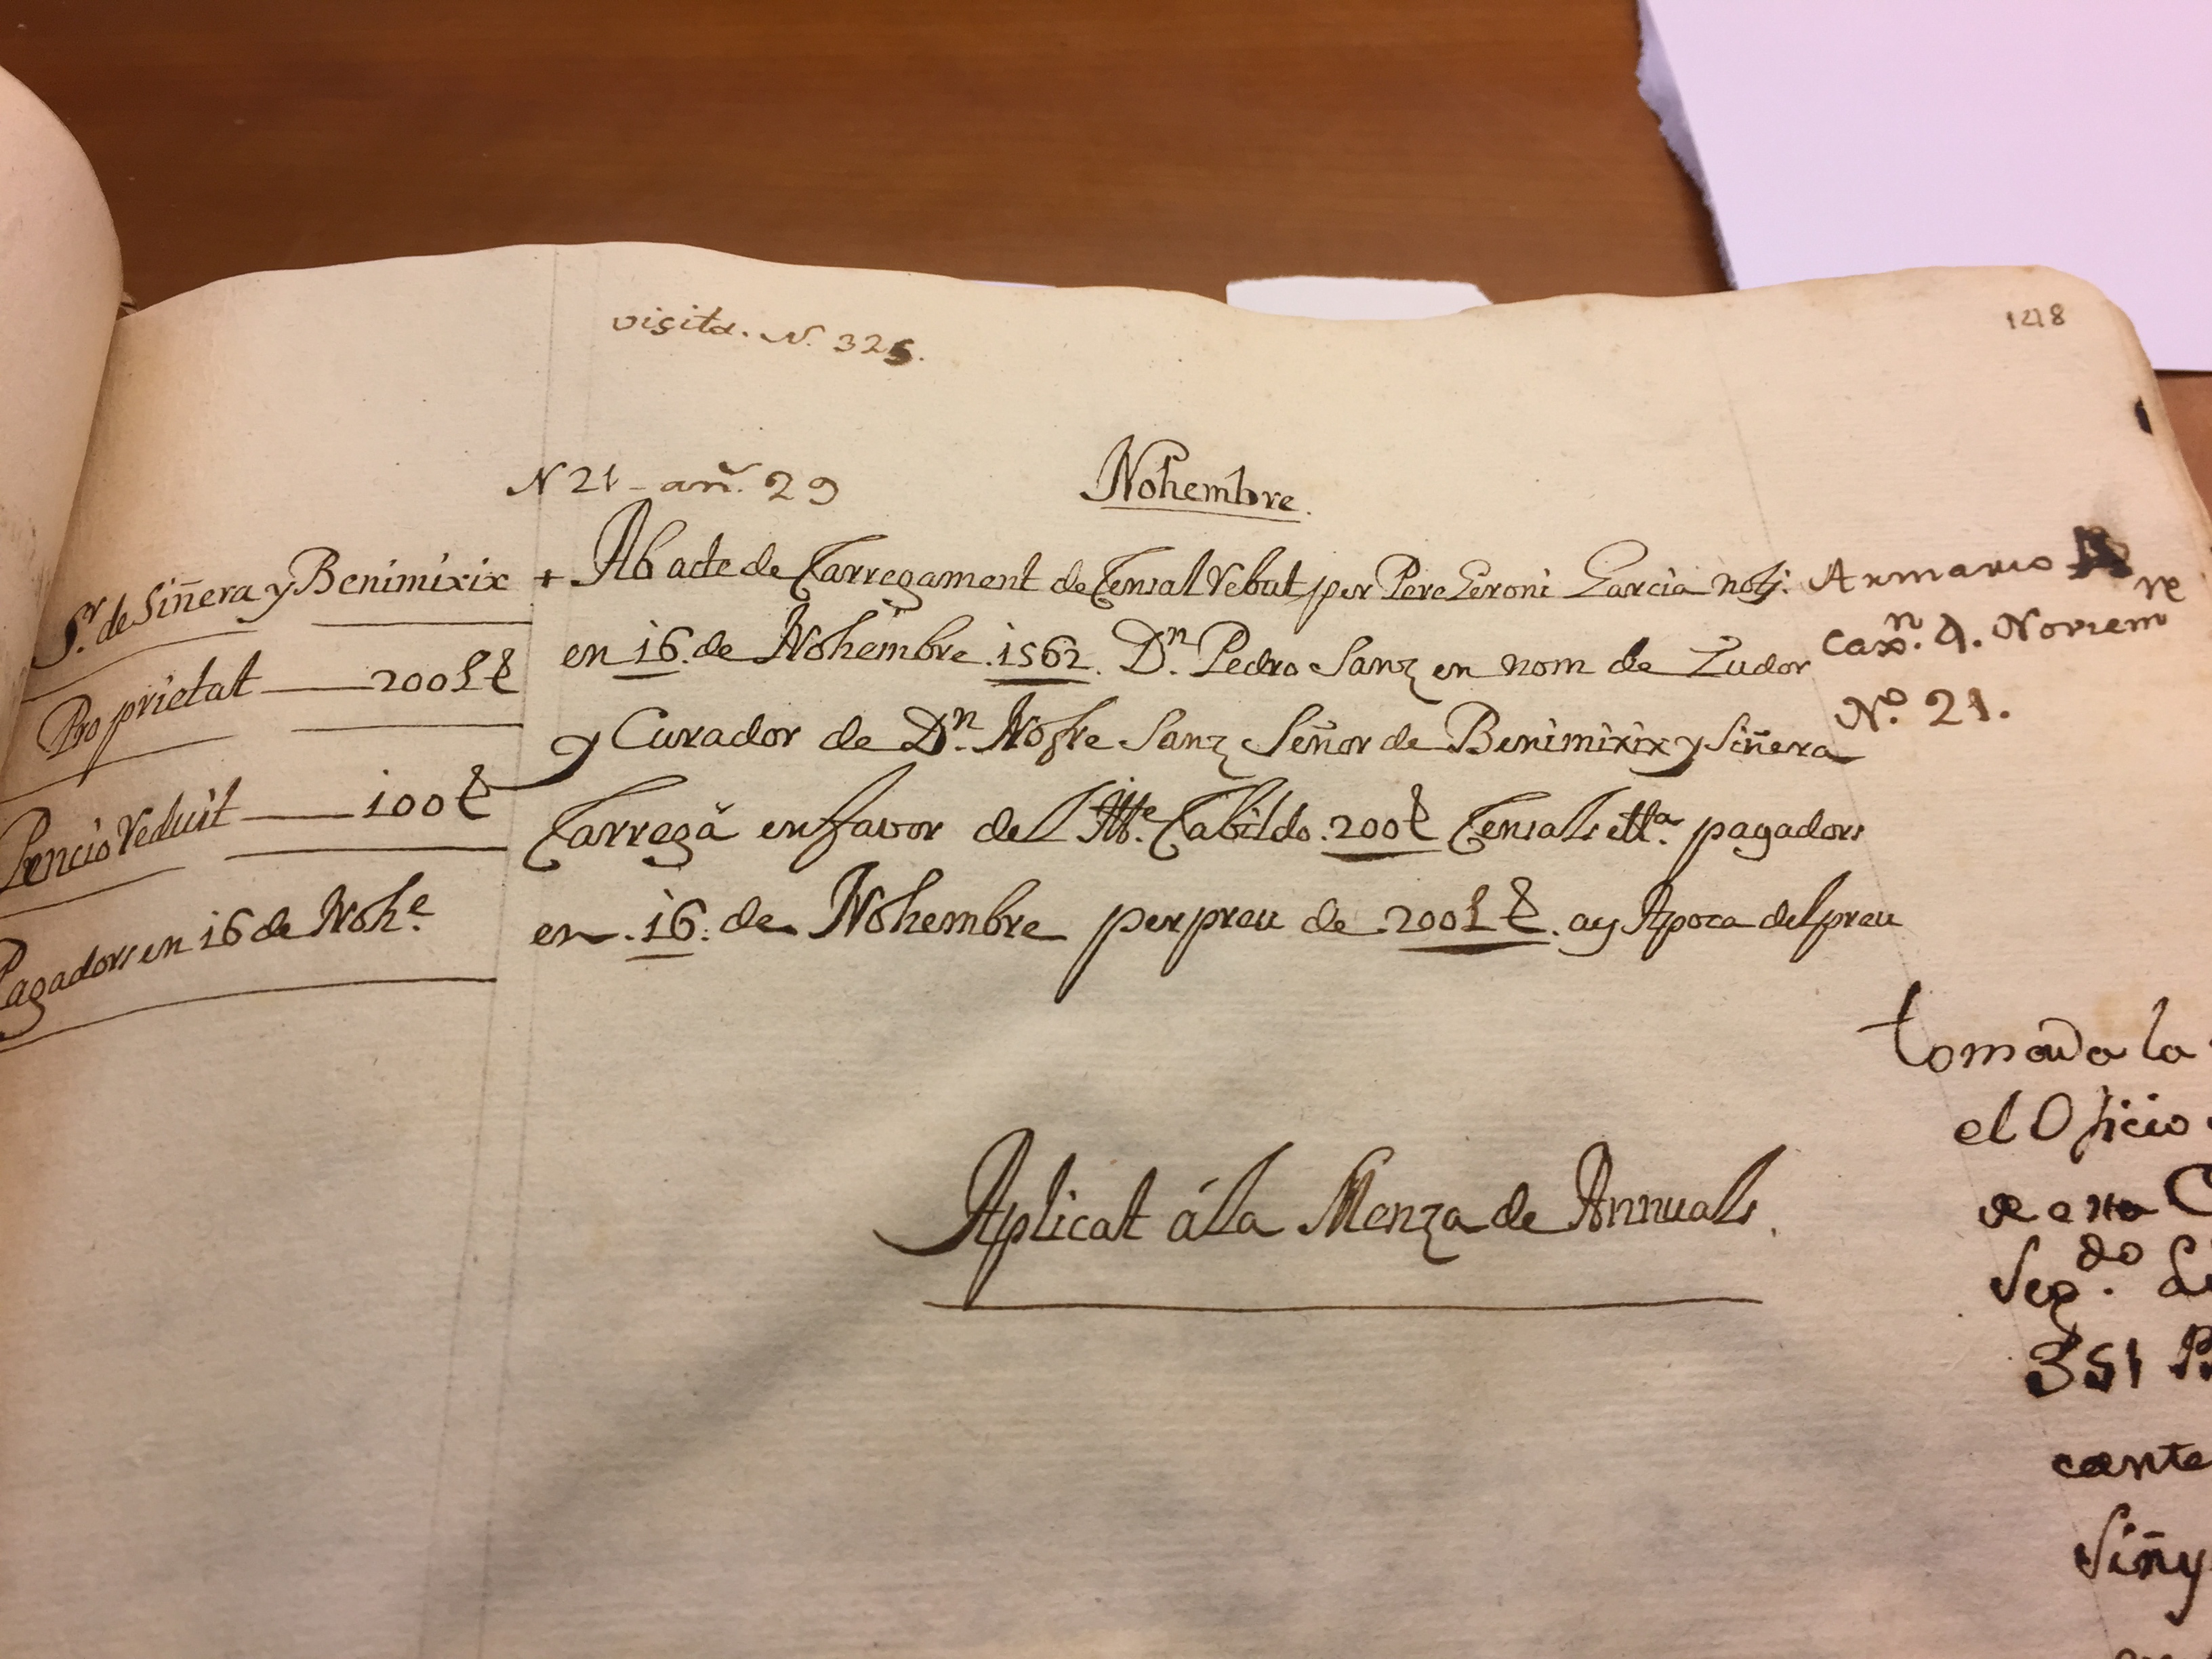 148
visita. N. 325.
N 21 - añ. 29
Nohembre.
S.r de Siñera y Benimixix
Proprietat — 200 L ₶
Penció Reduit — 100 ₶
Pagadors en 16 de Noh.e
+ Ab acte de Carregament de Censal Rebut per Pere Geroni Garcia not.
en 16. de Nohembre. 1562. D.n Pedro Sanz en nom de Tudor
y Curador de D.n Nofre Sanz Señor de Benimixix y Siñera
Carregà en favor del Ill.e Cabildo. 200 ₶ Censals ett.a pagadors
en. 16. de Nohembre per preu de 200 L ₶. ay Apoca del preu
Armario
Cax.n 4. Noviem re
N.o 21.
Aplicat á la Menza de Annuals.
tomada la
el Oficio
de esta C
Seg.do
351
cante
Siñy